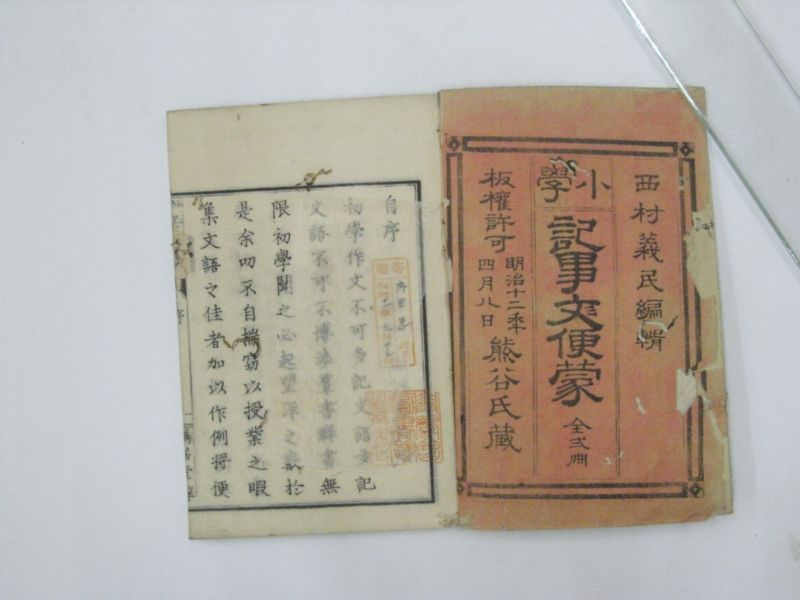 西村義民編輯
小學
記事文便蒙
全弐冊
板權許可
明治十二年
四月八日
熊谷氏蔵
自序
初學作文不可多記文語多記
文語不可不博渉群書群書無
限初學聞之必起望洋之歎於
是余叨不自揣竊以授業之暇
集文語之佳者加以作例将便